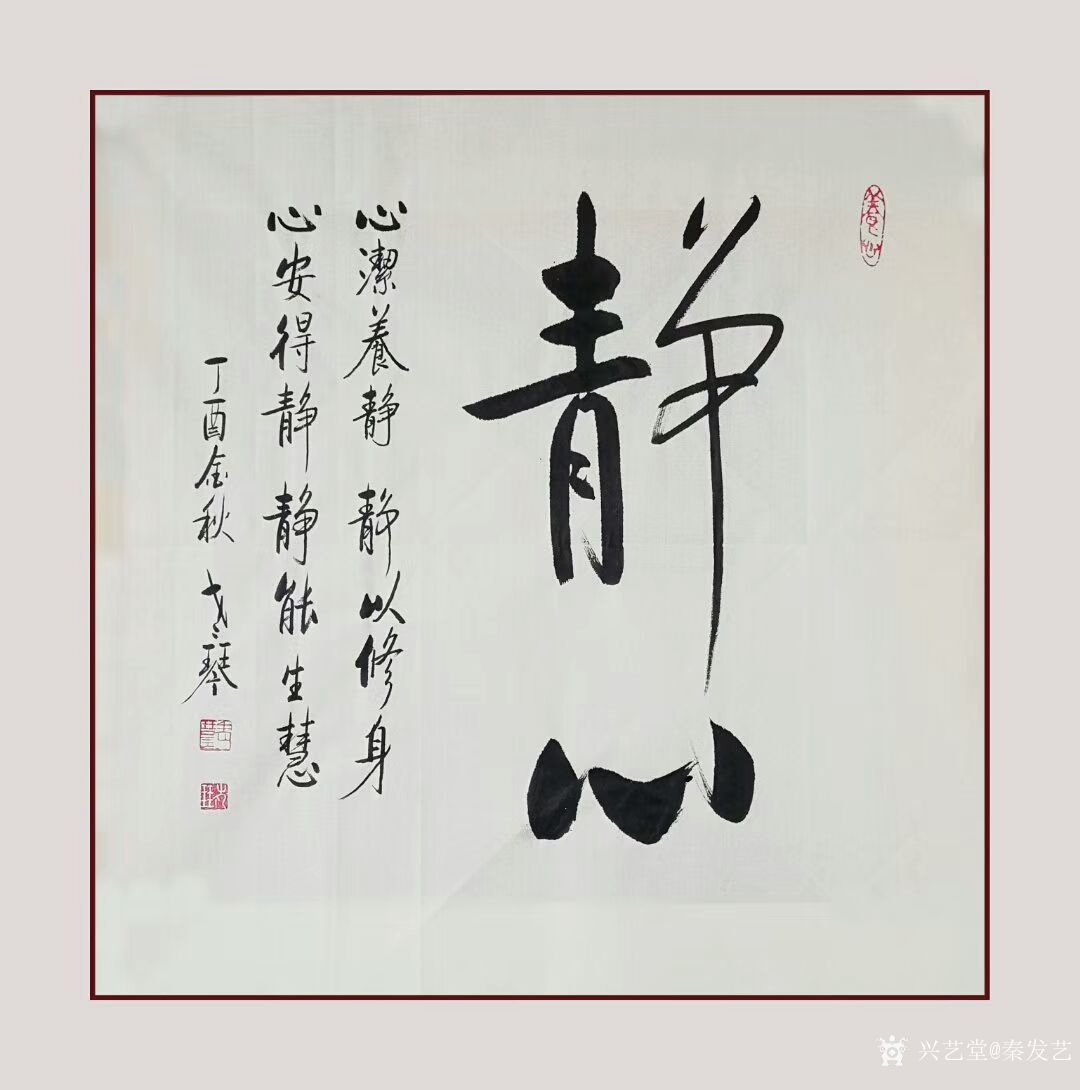 静心
心潔養静 静以修身
心安得静 静能生慧
丁酉金秋 琴
養心
兴艺堂@秦发艺